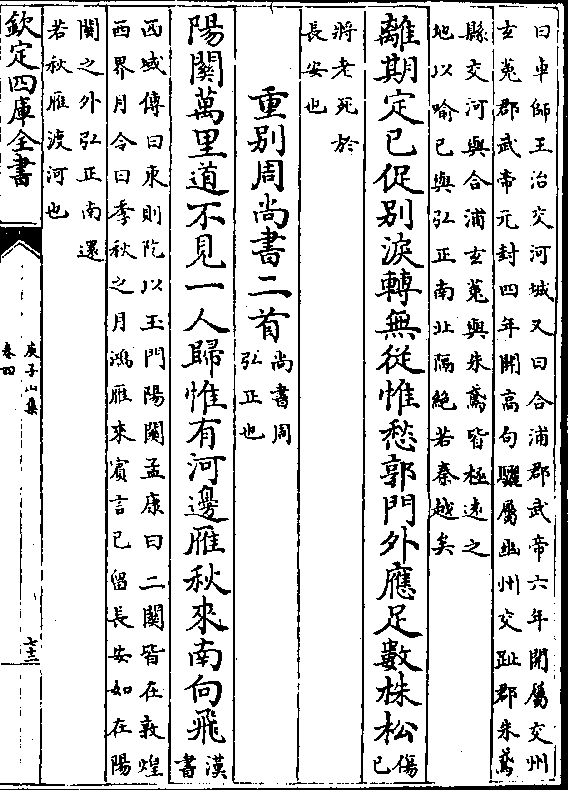 曰車師王治交河城又曰合浦郡武帝六年開屬交州
玄菟郡武帝元封四年開高句驪屬幽州交趾郡朱鳶
縣交河與合浦玄菟與朱鳶皆極遠之
地以喻已與弘正南北隔絶若秦越矣
離期定已促别淚轉無從惟愁郭門外應足數株松傷
已
將老死於
長安也
重别周尚書二首尚書周
弘正也
陽關萬里道不見一人歸惟有河邊雁秋來南向飛漢
書
西域傳曰東則阸以玉門陽關孟康曰二關皆在敦煌
西界月令曰季秋之月鴻雁來賓言已留長安如在陽
關之外弘正南還
若秋雁渡河也
欽定四庫全書
庾子山集
卷四
七十三